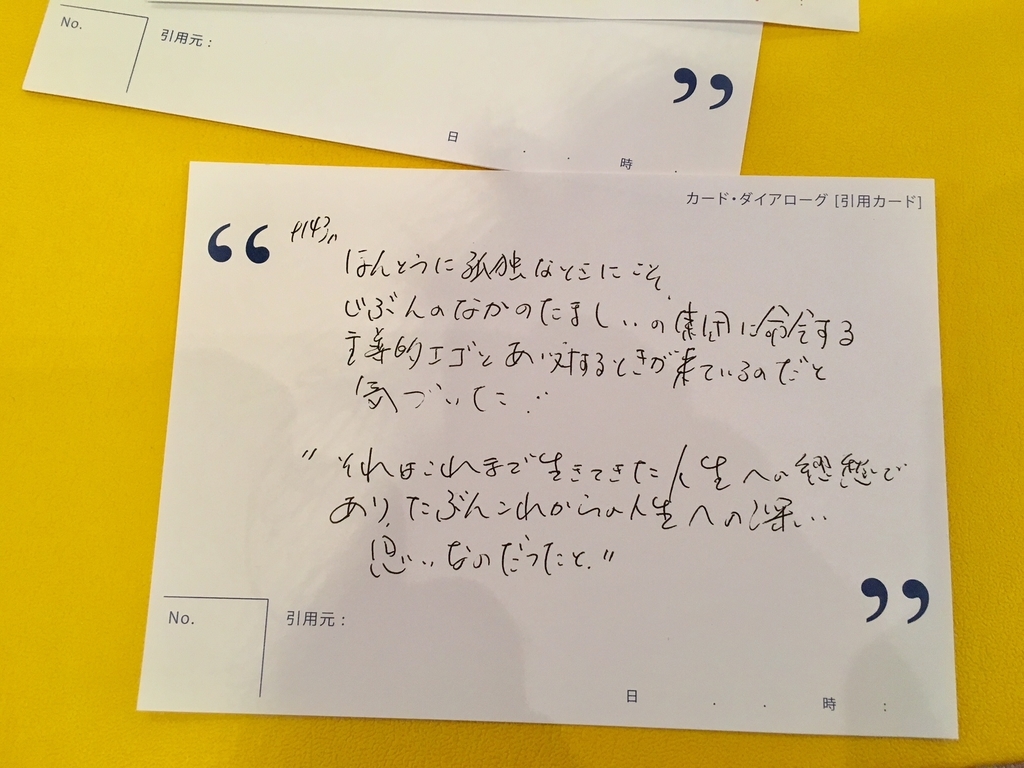 No.
引用元：
日 . . 時 .
カード・ダイアローグ [引用カード]
P143
ほんとうに孤独なときにこそ、
じぶんのなかのたましいの集団に命令する
主導的エゴとあい対するときが来ているのだと
気づいた…
"それはこれまで生きてきた人生への
あり、たぶんこれからの人生への深い
思いなのだったと."
No.
引用元：
日 . . 時 :